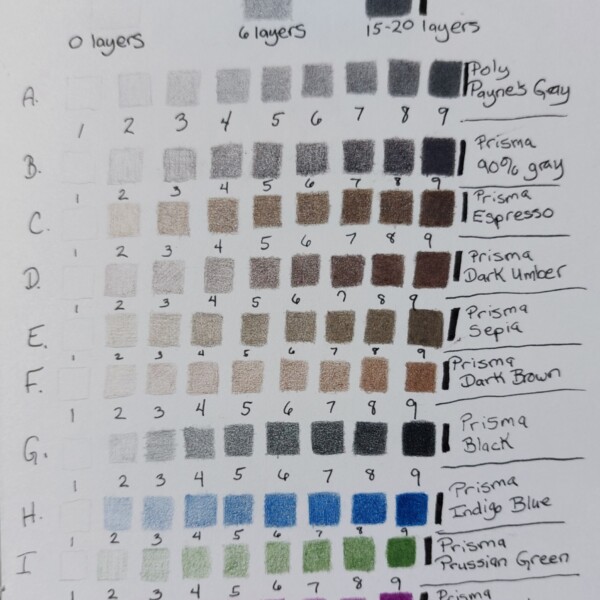 0 layers 6 layers 15-20 layers
A. Poly
Payne's Gray
1 2 3 4 5 6 7 8 9
B. Prisma
90% gray
1 2 3 4 5 6 7 8 9
C. Prisma
Espresso
1 2 3 4 5 6 7 8 9
D. Prisma
Dark Umber
1 2 3 4 5 6 7 8 9
E. Prisma
Sepia
1 2 3 4 5 6 7 8 9
F. Prisma
Dark Brown
1 2 3 4 5 6 7 8 9
G. Prisma
Black
1 2 3 4 5 6 7 8 9
H. Prisma
Indigo Blue
1 2 3 4 5 6 7 8 9
I Prisma
Prussian Green
1 2 3 4 5 6 7 8 9
Prisma